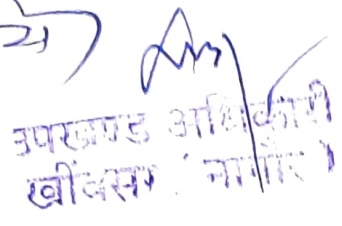 उपखण्ड अधिकारी
खींवसर (नागौर)